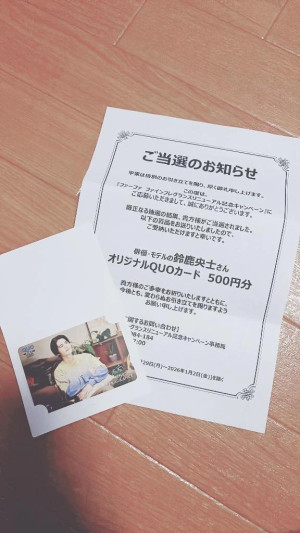 ご当選のお知らせ
申素は格別のお引き立てを賜り、厚く御礼申し上げます。
この度は、
「ファーファ ファインフレグランスリニューアル記念キャンペーン」に
ご応募いただきまして、誠にありがとうございます。
厳正なる抽選の結果、貴方様がご当選されました。
以下の賞品をお送りいたしましたので、
ご受納いただけますと幸いです。
俳優・モデルの鈴鹿央士さん
オリジナルQUOカード 500円分
貴方様のご多幸をお祈りいたしますとともに、
今後とも、変わらぬお引き立てを賜りますよう
お願い申し上げます。
関するお問い合わせ】
グランスリニューアル記念キャンペーン事務局
84-184
7:00
29日(月)～2026年1月2日(金)を除く